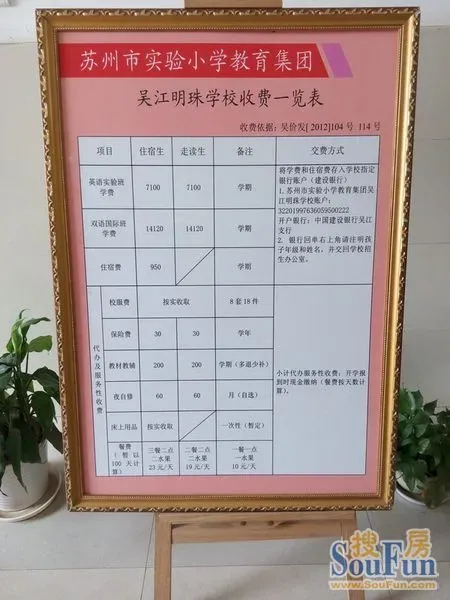 苏州市实验小学教育集团
吴江明珠学校收费一览表
收费依据：吴价发[2012]104号 114号
项目 住宿生 走读生 备注 交费方式
英语实验班
学费
7100 7100 学期
双语国际班
学费
14120 14120 学期
住宿费 950 学期
将学费和住宿费存入学校指定
银行账户（建设银行）
1.苏州市实验小学教育集团吴
江明珠学校账户：
32201997636059500222
开户银行：中国建设银行吴江
支行
2. 银行回单右上角请注明孩
子年级和姓名，并交回学校招
生办公室。
代办及服务性收费
校服费 按实收取 8套18件
保险费 30 30 学年
教材教辅 200 200 学期（多退少补）
夜自修 60 60 月（自选）
床上用品 按实收取 一次性（暂定）
餐费
（暂以
100天计
算）
三餐二点
二水果
23元/天
二餐二点
二水果
19元/天
一餐一点
一水果
10元/天
小计代办服务性收费：开学报
到时现金缴纳（餐费按天数计
算）。
搜房
SouFun
www.SouFun.com